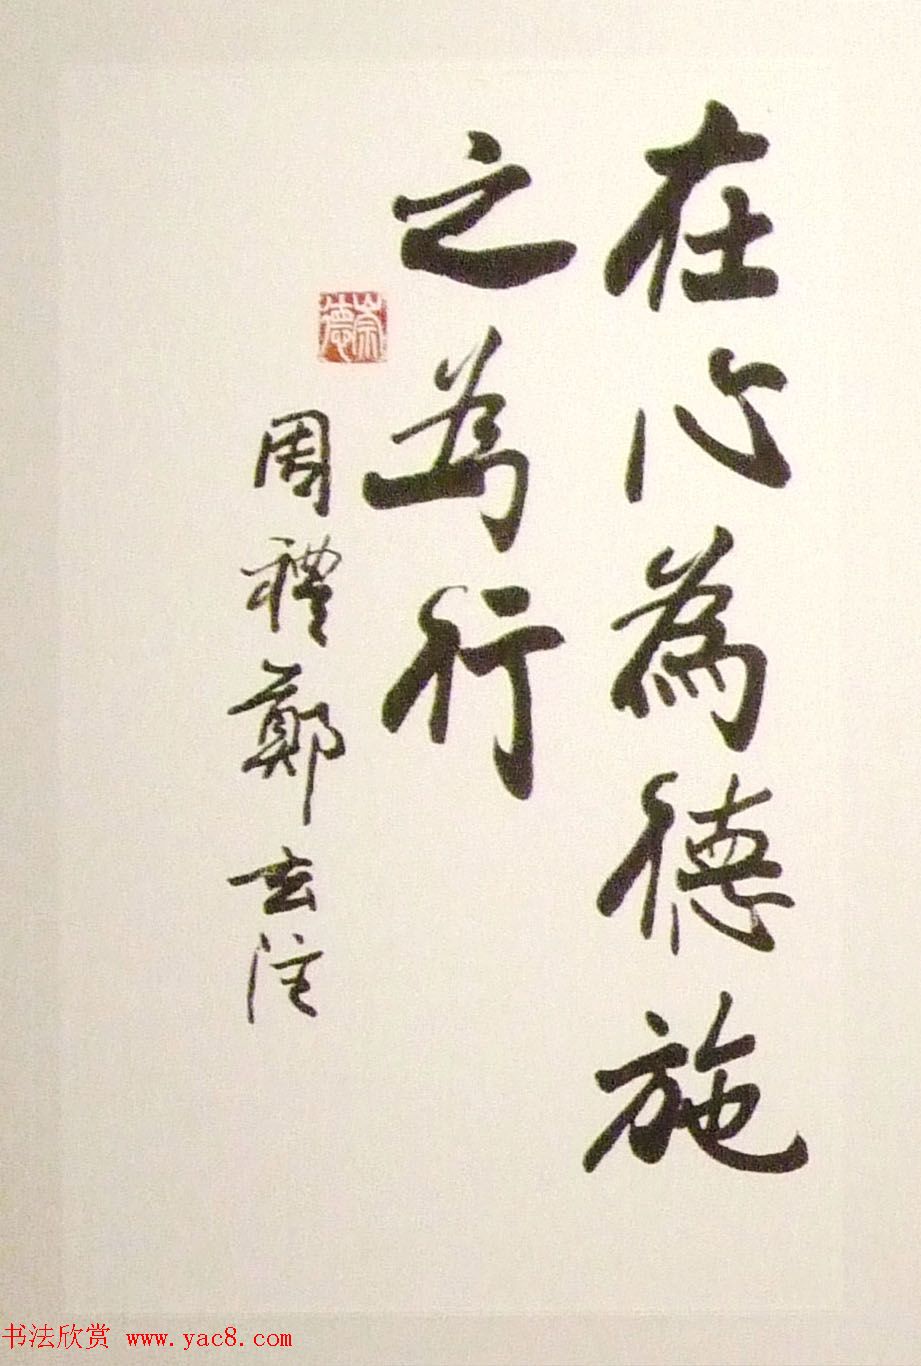 在心為德施
之為行
崇德
周禮鄭玄注
书法欣赏 www.yac8.com